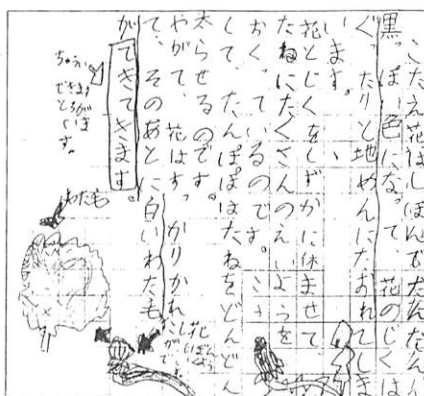 こたえ花はしぼんでだんだん
黒っぽい色になって花のじくは
ぐったりと地めんにたおれてしま
います。
花とじくをしずかに休ませて
たねにたくさんのえいようを
おくっているのです。こう
して、たんぽぽはたねをどんどん
太らせるのです。
やがて、花はすっかりかれ
て、そのあとに白いわた毛
ができてきます。
わた毛